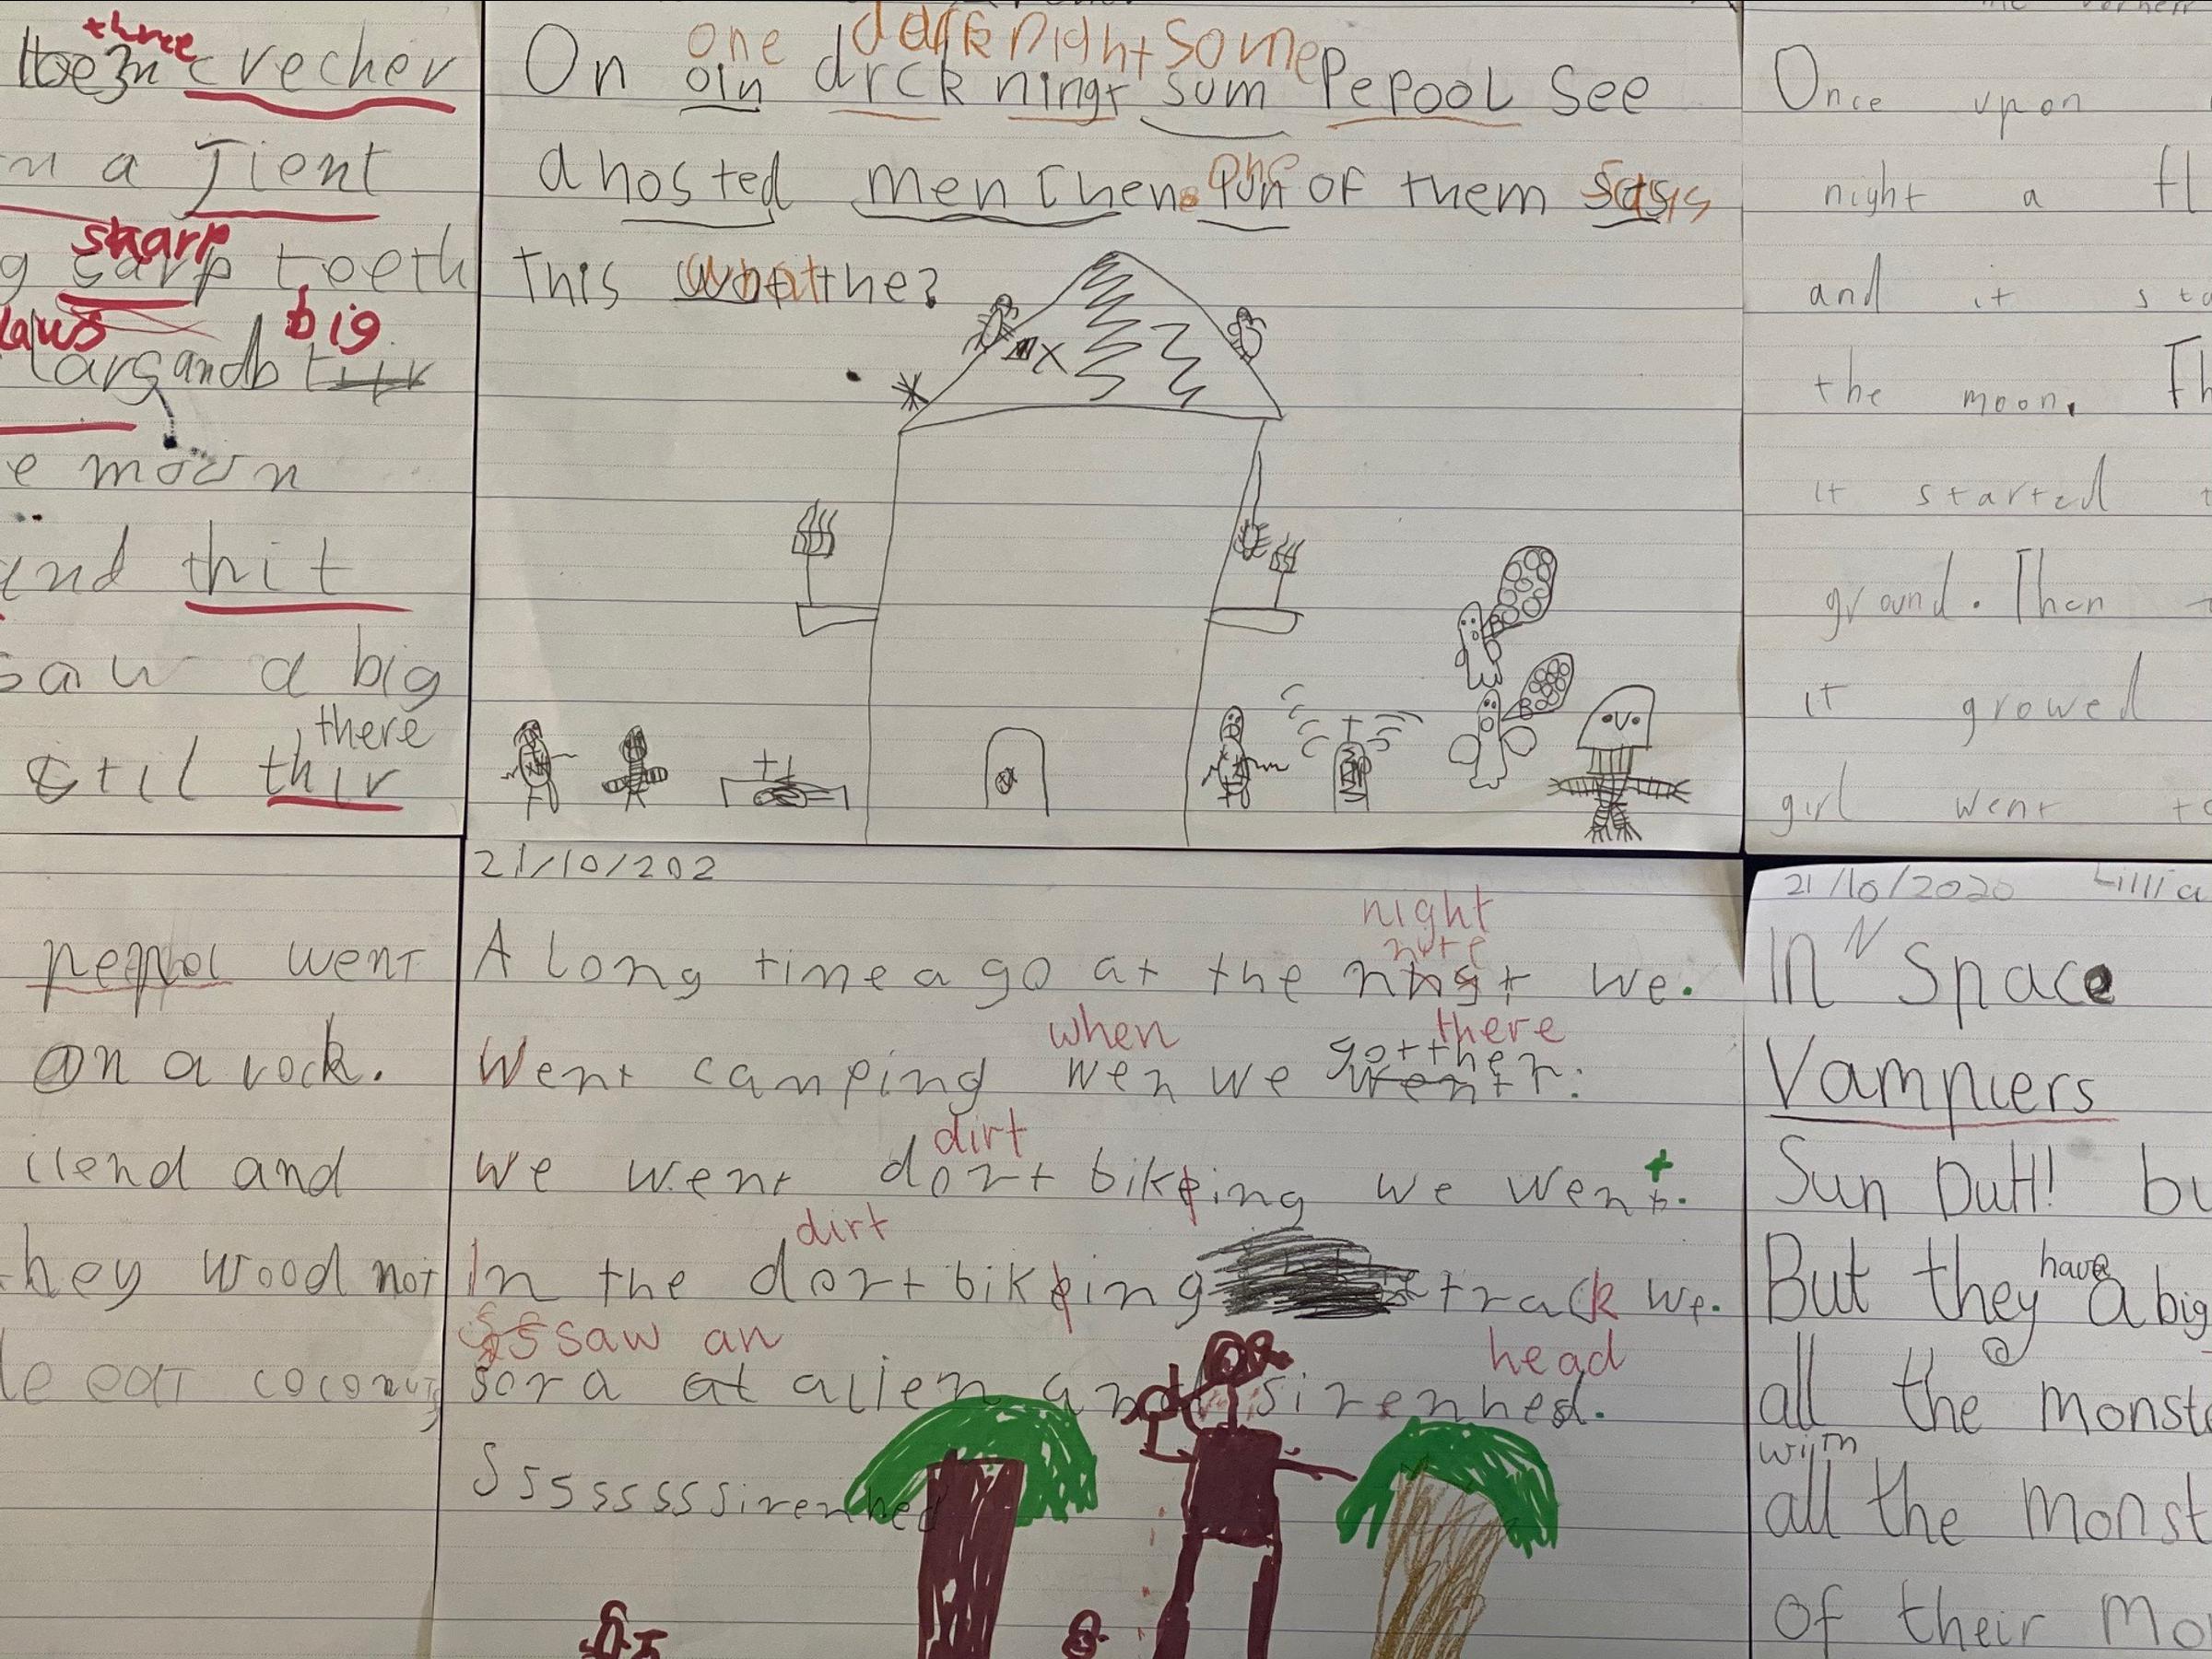 three
crecher
a Jient
sharp
g carp teeth
laws big
larg and b
e moon
and thit
saw a big
there
still thir
one dark night some
On oin drck ningt sum Pepool see
a hosted menchen. one of them says
This what the?
Once upon
night a fl
and it sta
the moon. Th
it started t
ground. Then
it growed
girl went to
pepol went
on a rock.
ilend and
they wood not
le eat coconuts
21/10/202
night
nite
A long time a go at the we.
when there
Went camping wen we got ther.
dirt
we went dort bikking we went.
dirt
In the dort bikking track we.
saw an head
sor a at alien and sirenhed.
Sssssssssirenhed
21/10/2020 Lillia
In N Space
Vampiers
Sun Dutt! bu
have
But they a big
all the monste
with
all the monst
of their Mo